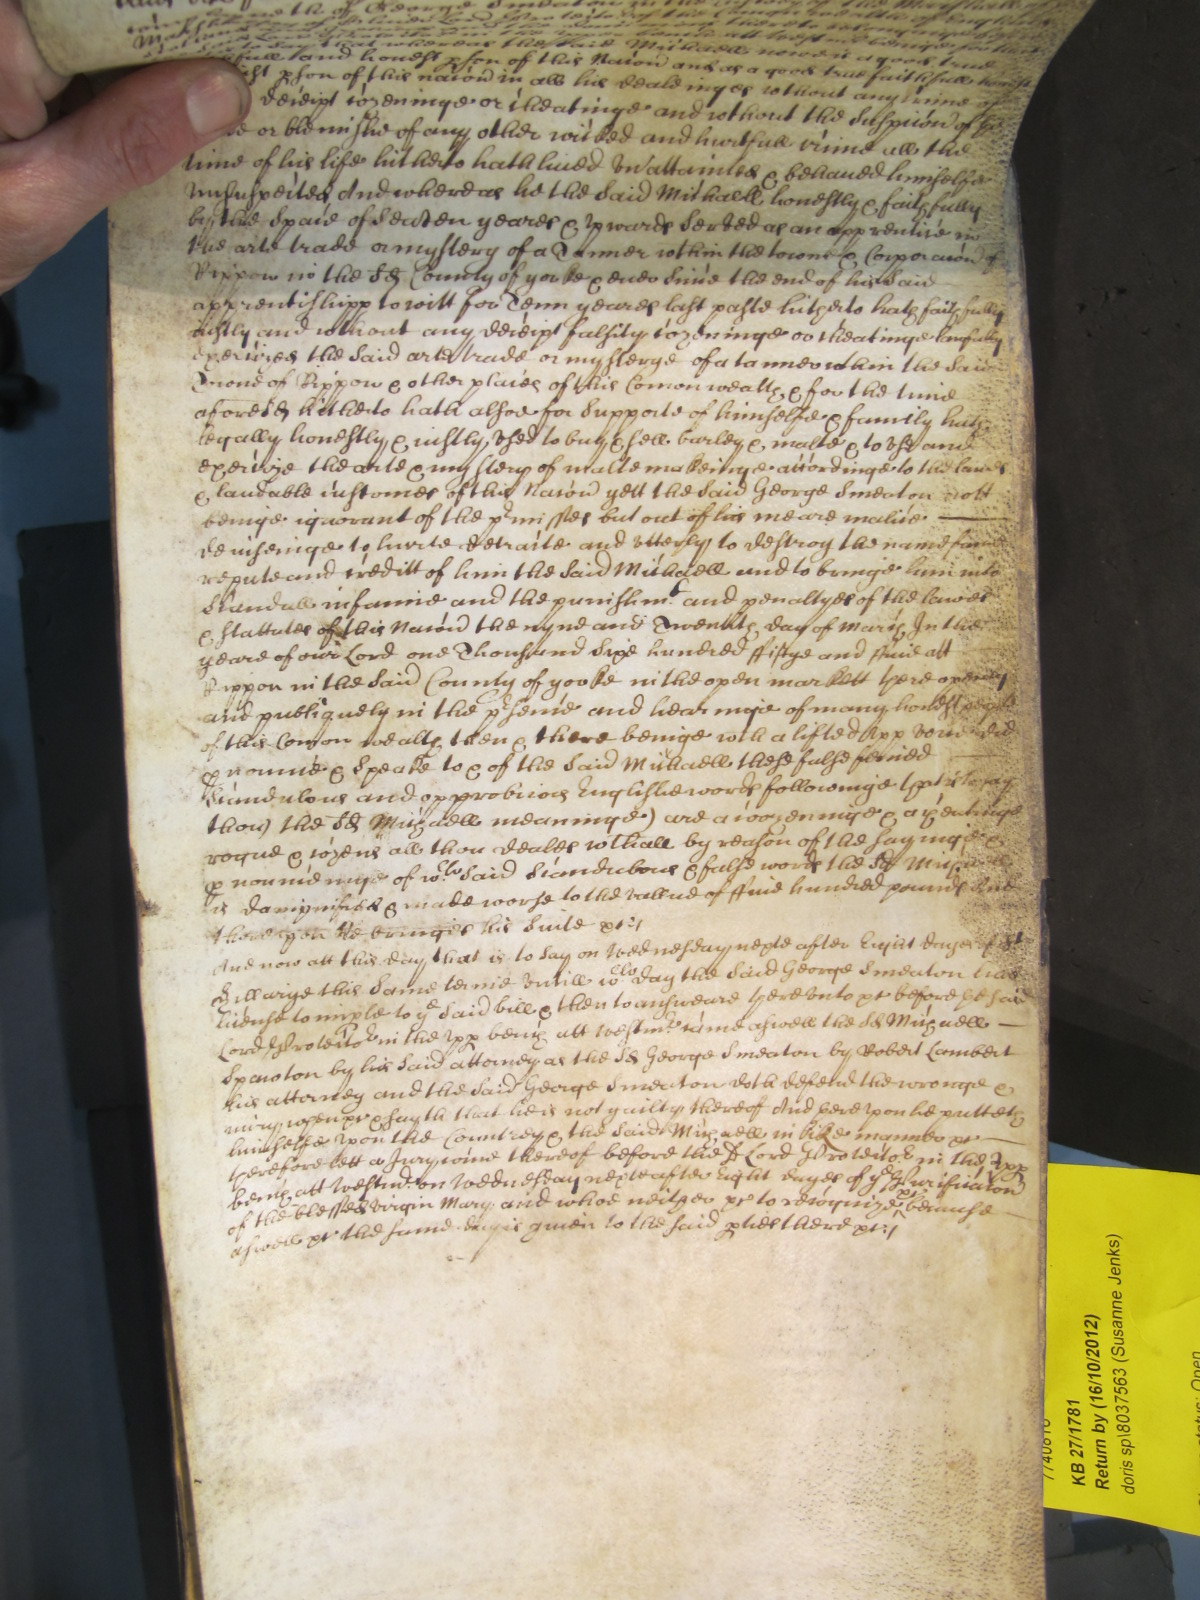 of George Smeaton in the
that whereas the said Michaell nowe is a good true
faithfull and honest pson of this Nacion and as a good true faithfull
pson of this nacion in all his dealeinges without any crime of
deceipt cozeninge or cheatinge and without the suspicion of
or blemishe of any other wicked and hurtfull crime all the
time of his life hitherto hath lived unattainted & behaved himselfe
unsuspected And whereas he the said Michaell honestly & faithfully
by the space of Seaven yeares & upwards served as an apprentice in
the arte trade or mystery of a Tanner within the towne & Corporacion of
Rippon in the sd County of yorke & ever since the end of his said
apprentishipp to witt for Tenn yeares last paste hitherto hath faithfully
iustly and without any deceipt falsity cozeninge or cheatinge lawfully
exercised the said arte trade or mysterye of a tanner within the said
Towne of Rippon & other places of this Comon wealth & for the time
aforesd hitherto hath alsoe for Supporte of himselfe & family hath
legally honestly & iustly used to buy & sell barley & malte & to use and
exercise the arte & mystery of malte makeinge accordinge to the lawes
& laudable customes of this Nacion yett the said George Smeaton not
beinge ignorant of the pmisses but out of his meare malice
deviseinge to hurte detracte and utterly to destroy the name fame
repute and creditt of him the said Michaell and to bringe him into
Scandall infamie and the punishmt and penaltyes of the lawes
& Stattutes of this Nacion the nyne and Twentith day of March In the
yeare of our Lord one Thousand Sixe hundred ffiftye and ffive att
Rippon in the said County of yorke in the open markett there openly
and publiquely in the psence and heareinge of many honest people
of this Comon wealth then & there beinge with a lifted upp voice did
pnounce & speake to & of the said Michaell these false feined
Scandulous and opprobrious Englishe words followinge that is to say
thou) the sd Michaell meaninge) are a cozeninge & a cheatinge
rogue & cozens all thou deales withall by reason of the sayinge &
pnounceinge of wch said Scandulous & false words the sd Michaell
is dampnified & made worse to the vallue of ffive hundred pounds And
thereupon he bringes his Suite &c:/
And now att this day that is to say on Wednesday nexte after Eight dayes of St
Hillarye this same terme untill wch day the said George Smeaton had
license to imple to ye said bill & then to answeare thereunto &c before the said
Lord Protector in the upp bench att Westmr came aswell the sd Michaell
Spawton by his said attorney as the sd George Smeaton by Robert Lambert
his attorney and the said George Smeaton doth defend the wronge &
iniury when &c & sayth that he is not guilty thereof And hereupon he putteth
himselfe upon the Countrey & the said Michaell in like manner &c
therefore lett a Jury come thereof before the sd Lord Protector in the upp
bench att Westmr on Wednesday nexte after Eight dayes of ye Purificacion
of the blessed virgin Mary and whoe neither &c to recognize &c because
aswell &c the same day is given to the said pties there &c:/
KB 27/1781
Return by (16/10/2012)
doris sp\8037563 (Susanne Jenks)